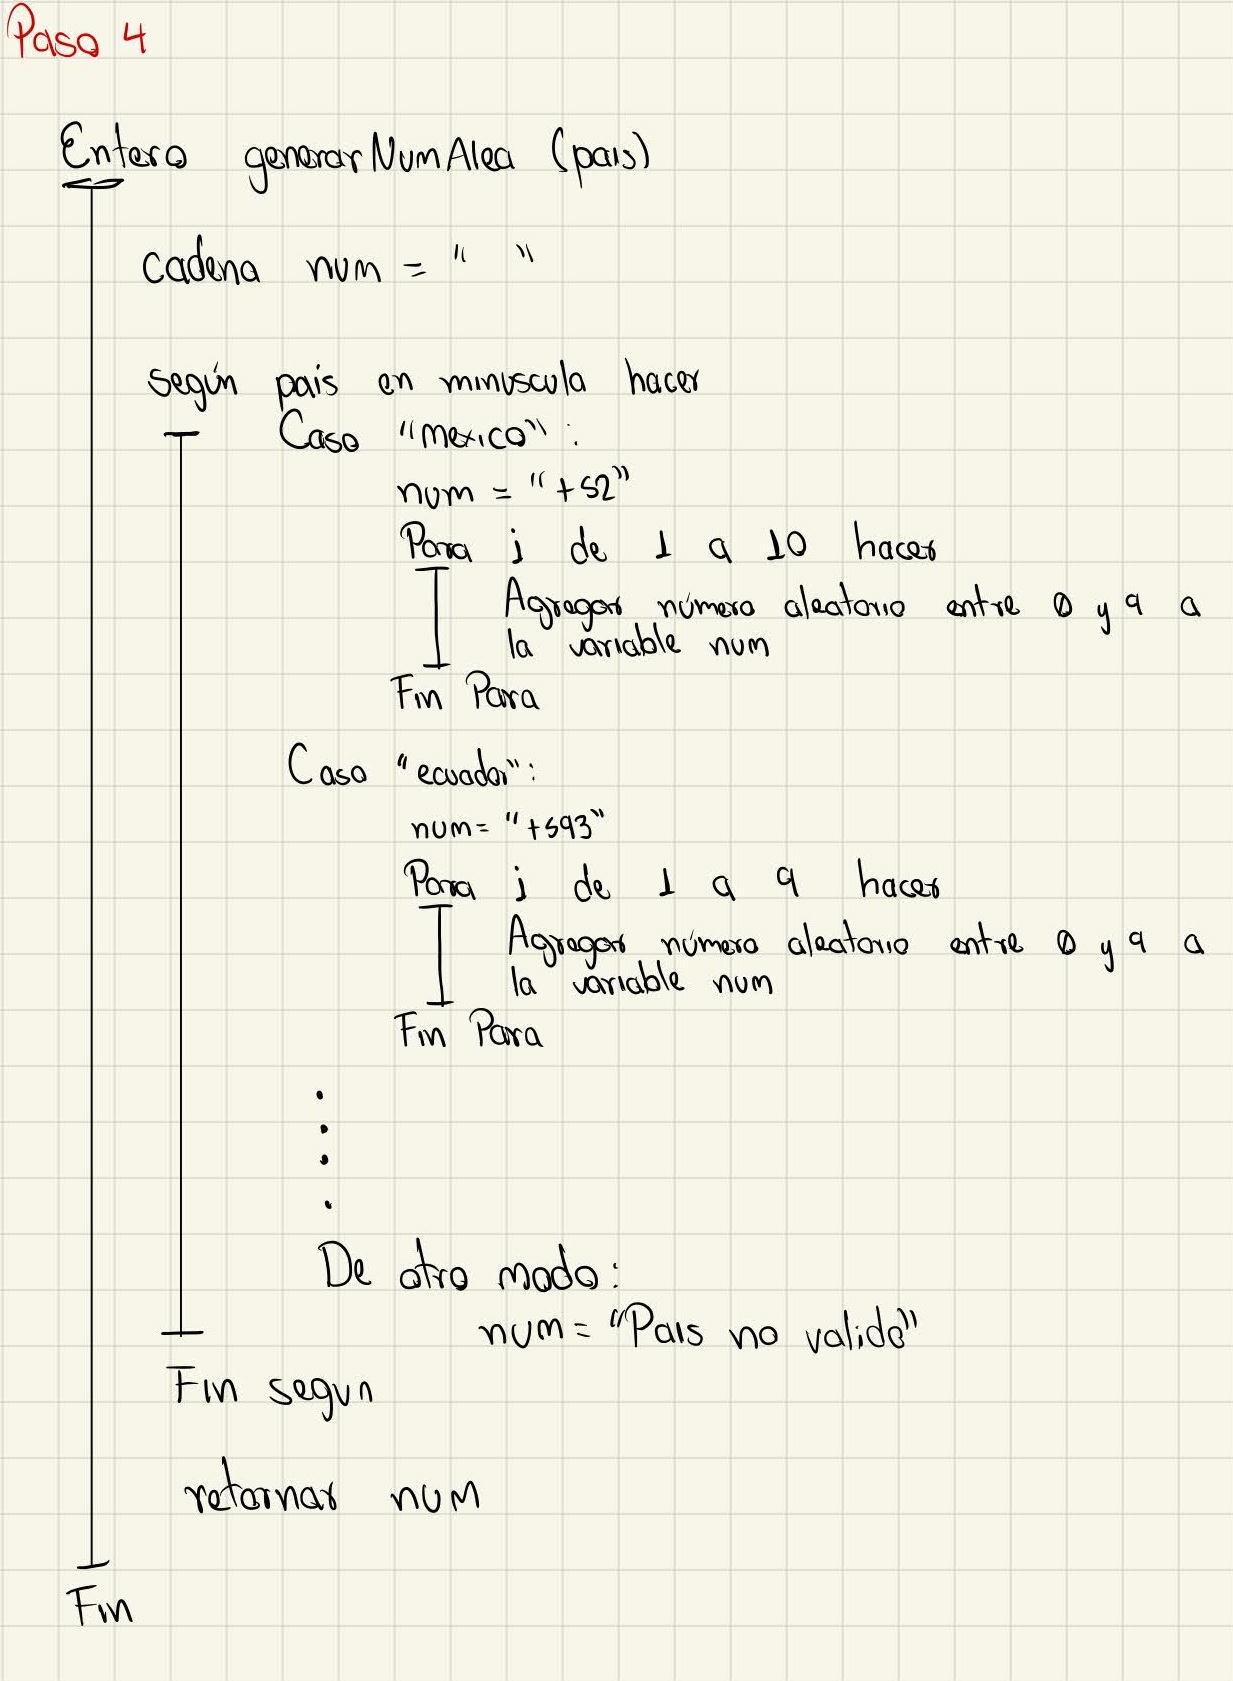 Paso 4
Entero generarNumAlea (pais)
cadena num = " "
según pais en minuscula hacer
Caso "mexico":
num = "+52"
Para j de 1 a 10 hacer
Agregar número aleatorio entre 0 y 9 a
la variable num
Fin Para
Caso "ecuador":
num= "+593"
Para j de 1 a 9 hacer
Agregar número aleatorio entre 0 y 9 a
la variable num
Fin Para
De otro modo:
num= "Pais no valido"
Fin segun
retornar num
Fin